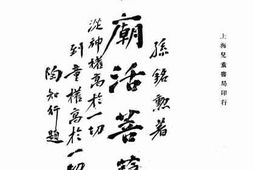 上海兒童書局印行
孫銘勳著
廟活菩薩
從神權高於一切
到童權高於一切
陶知行題